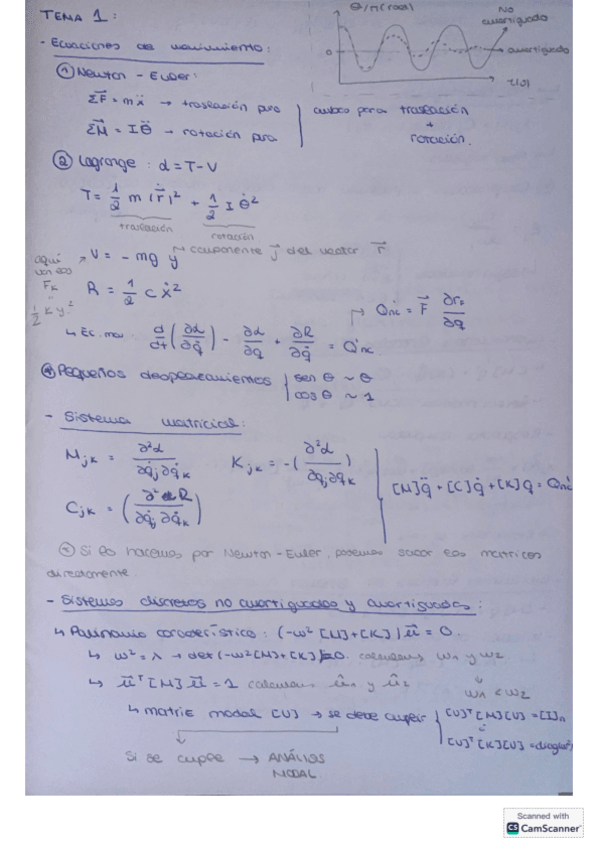 TEMA 1:
θ/r(rad)
No amortiguado
amortiguado
0
t(s)
- Ecuaciones de movimiento:
① Newton - Euler:
ΣF⃗ = mẍ → traslación pura
ΣM⃗ = I θ̈ → rotación pura
ambos para traslación + rotación.
② Lagrange: L = T - V
T = 1/2 m (ṙ⃗)² + 1/2 I θ̇²
traslación
rotación
V = - mg y
componente j⃗ del vector r⃗
aquí van las Fk
1/2 k y²
R = 1/2 c ẋ²
Qnc = F⃗ ∂r/∂q
↳ Ec. mov d/dt (∂L/∂q̇) - ∂L/∂q + ∂R/∂q̇ = Qnc
Pequeños desplazamientos { sen θ ~ θ
cos θ ~ 1
- Sistema matricial:
Mjk = ∂²L/∂q̇j∂q̇k
Kjk = -(∂²L/∂qj∂qk)
Cjk = (∂²R/∂q̇j∂q̇k)
[M]q̈ + [C]q̇ + [K]q = Qnc
Si lo hacemos por Newton-Euler, podemos sacar las matrices
directamente
- Sistemas discretos no amortiguados y amortiguados:
↳ Polinomio característico: (-ω²[M]+[K])u⃗ = 0.
↳ ω² = λ → det(-ω²[M]+[K])=0. calculamos ω1 y ω2
ω1 < ω2
↳ u⃗ᵀ[M]u⃗ = 1 calculamos û1 y û2
↳ matriz modal [U] → se debe cumplir { [U]ᵀ[M][U] = [I]n
[U]ᵀ[K][U] = diag(ω²)
Si se cumple → ANÁLISIS
MODAL
Scanned with
CS CamScanner